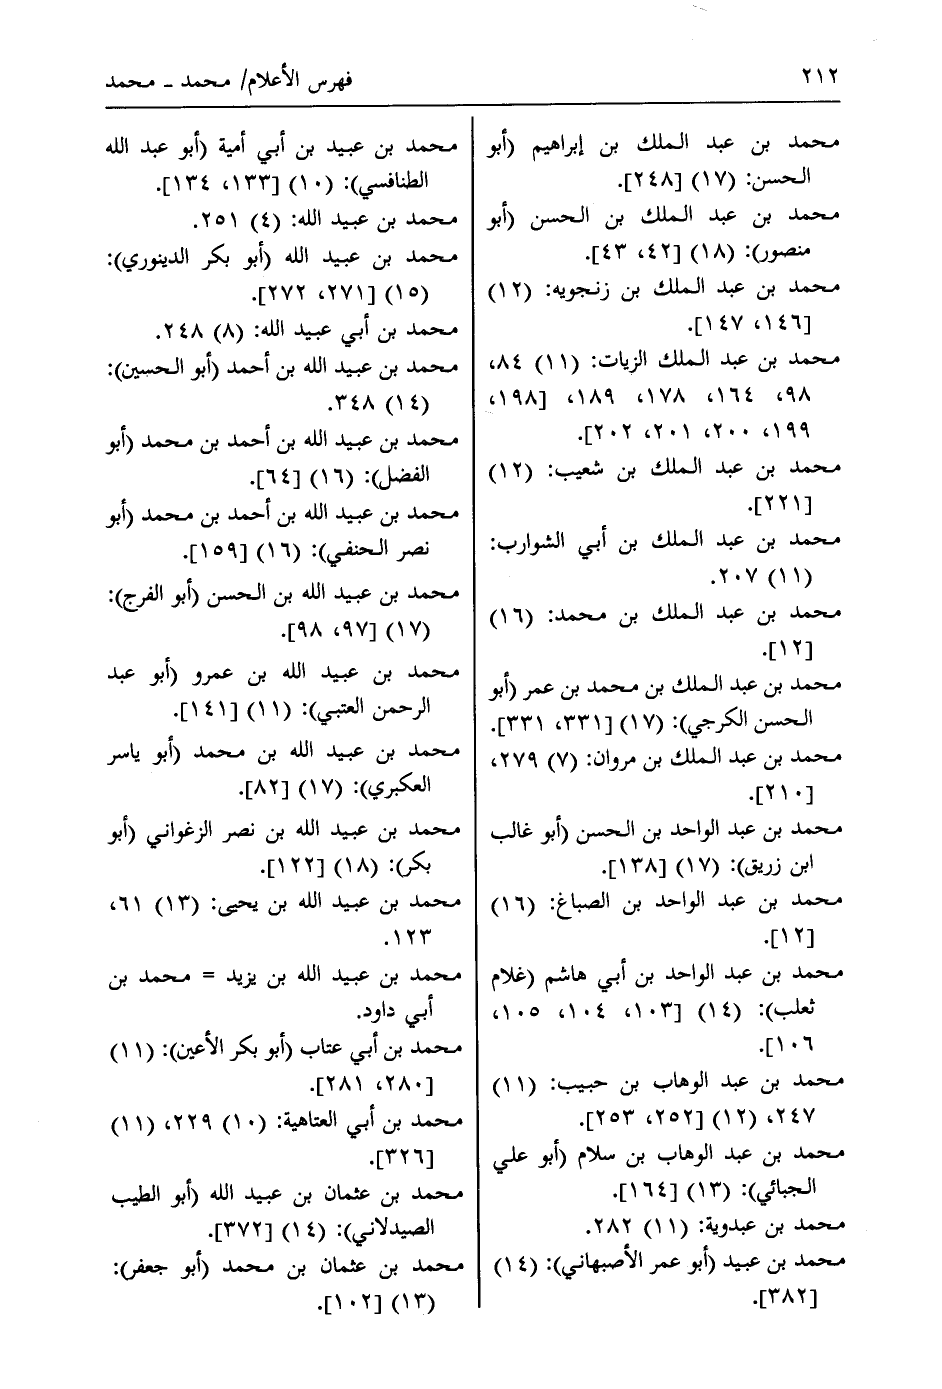 ٢١٢
فهرس الأعلام/ محمد ـ محمد
محمد بن عبد الملك بن إبراهيم (أبو
الحسن: (١٧) [٢٤٨].
محمد بن عبد الملك بن الحسن (أبو
منصور): (١٨) [٤٢، ٤٣].
محمد بن عبد الملك بن زنجويه: (١٢)
[١٤٦، ١٤٧].
محمد بن عبد الملك الزيات: (١١) ٨٤،
٩٨، ١٦٤، ١٧٨، ١٨٩، [١٩٨،
١٩٩، ٢٠٠، ٢٠١، ٢٠٢].
محمد بن عبد الملك بن شعيب: (١٢)
[٢٢١].
محمد بن عبد الملك بن أبي الشوارب:
(١١) ٢٠٧.
محمد بن عبد الملك بن محمد: (١٦)
[١٢].
محمد بن عبد الملك بن محمد بن عمر (أبو
الحسن الكرجي): (١٧) [٣٣١، ٣٣١].
محمد بن عبد الملك بن مروان: (٧) ٢٧٩،
[٢١٠].
محمد بن عبد الواحد بن الحسن (أبو غالب
ابن زريق): (١٧) [١٣٨].
محمد بن عبد الواحد بن الصباغ: (١٦)
[١٢].
محمد بن عبد الواحد بن أبي هاشم (غلام
ثعلب): (١٤) [١٠٣، ١٠٤، ١٠٥،
١٠٦].
محمد بن عبد الوهاب بن حبيب: (١١)
٢٤٧، (١٢) [٢٥٢، ٢٥٣].
محمد بن عبد الوهاب بن سلام (أبو علي
الجبائي): (١٣) [١٦٤].
محمد بن عبدوية: (١١) ٢٨٢.
محمد بن عبيد (أبو عمر الأصبهاني): (١٤)
[٣٨٢].
محمد بن عبيد بن أبي أمية (أبو عبد الله
الطنافسي): (١٠) [١٣٣، ١٣٤].
محمد بن عبيد الله: (٤) ٢٥١.
محمد بن عبيد الله (أبو بكر الدينوري):
(١٥) [٢٧١، ٢٧٢].
محمد بن أبي عبيد الله: (٨) ٢٤٨.
محمد بن عبيد الله بن أحمد (أبو الحسين):
(١٤) ٣٤٨.
محمد بن عبيد الله بن أحمد بن محمد (أبو
الفضل): (١٦) [٦٤].
محمد بن عبيد الله بن أحمد بن محمد (أبو
نصر الحنفي): (١٦) [١٥٩].
محمد بن عبيد الله بن الحسن (أبو الفرج):
(١٧) [٩٧، ٩٨].
محمد بن عبيد الله بن عمرو (أبو عبد
الرحمن العتبي): (١١) [١٤١].
محمد بن عبيد الله بن محمد (أبو ياسر
العكبري): (١٧) [٨٢].
محمد بن عبيد الله بن نصر الزغواني (أبو
بكر): (١٨) [١٢٢].
محمد بن عبيد الله بن يحيى: (١٣) ٦١،
١٢٣.
محمد بن عبيد الله بن يزيد = محمد بن
أبي داود.
محمد بن أبي عتاب (أبو بكر الأعين): (١١)
[٢٨٠، ٢٨١].
محمد بن أبي العتاهية: (١٠) ٢٢٩، (١١)
[٣٢٦].
محمد بن عثمان بن عبيد الله (أبو الطيب
الصيدلاني): (١٤) [٣٧٢].
محمد بن عثمان بن محمد (أبو جعفر):
(١٣) [١٠٢].